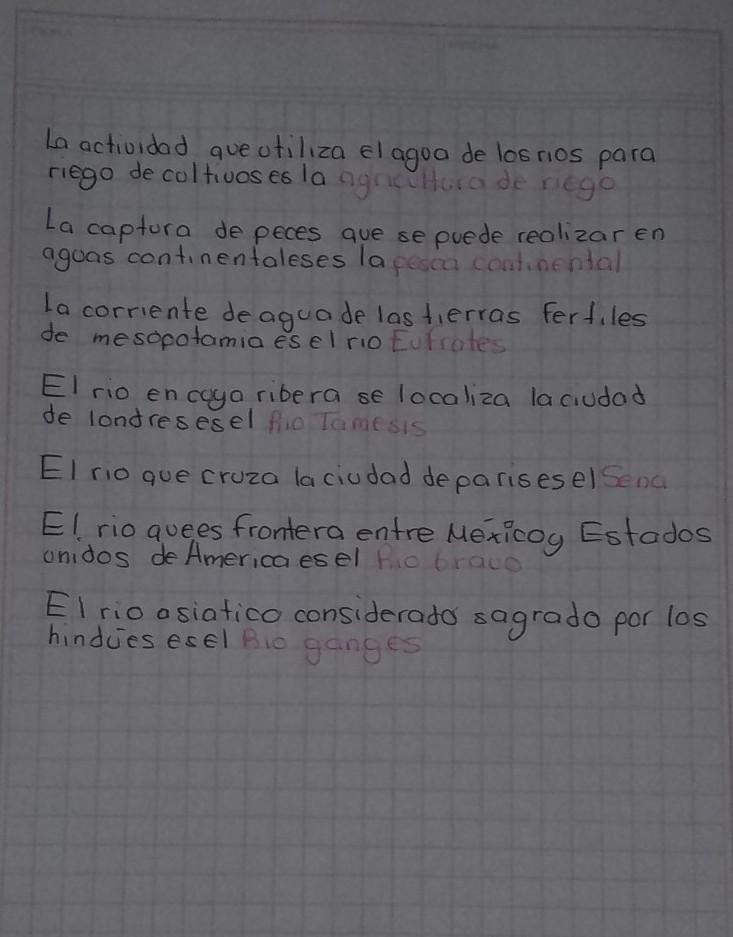 La actividad que utiliza el agua de los rios para
riego de cultivos es la agricultura de riego
La captura de peces que se puede realizar en
aguas continentales es la pesca continental
la corriente de agua de las tierras fertiles
de mesopotamia es el rio Eufrates
El rio en cuya ribera se localiza la ciudad
de londres es el Rio Tamesis
El rio que cruza la ciudad de paris es el Sena
El rio que es frontera entre México y Estados
unidos de America es el Rio bravo
El rio asiatico considerado sagrado por los
hindúes es el Rio ganges